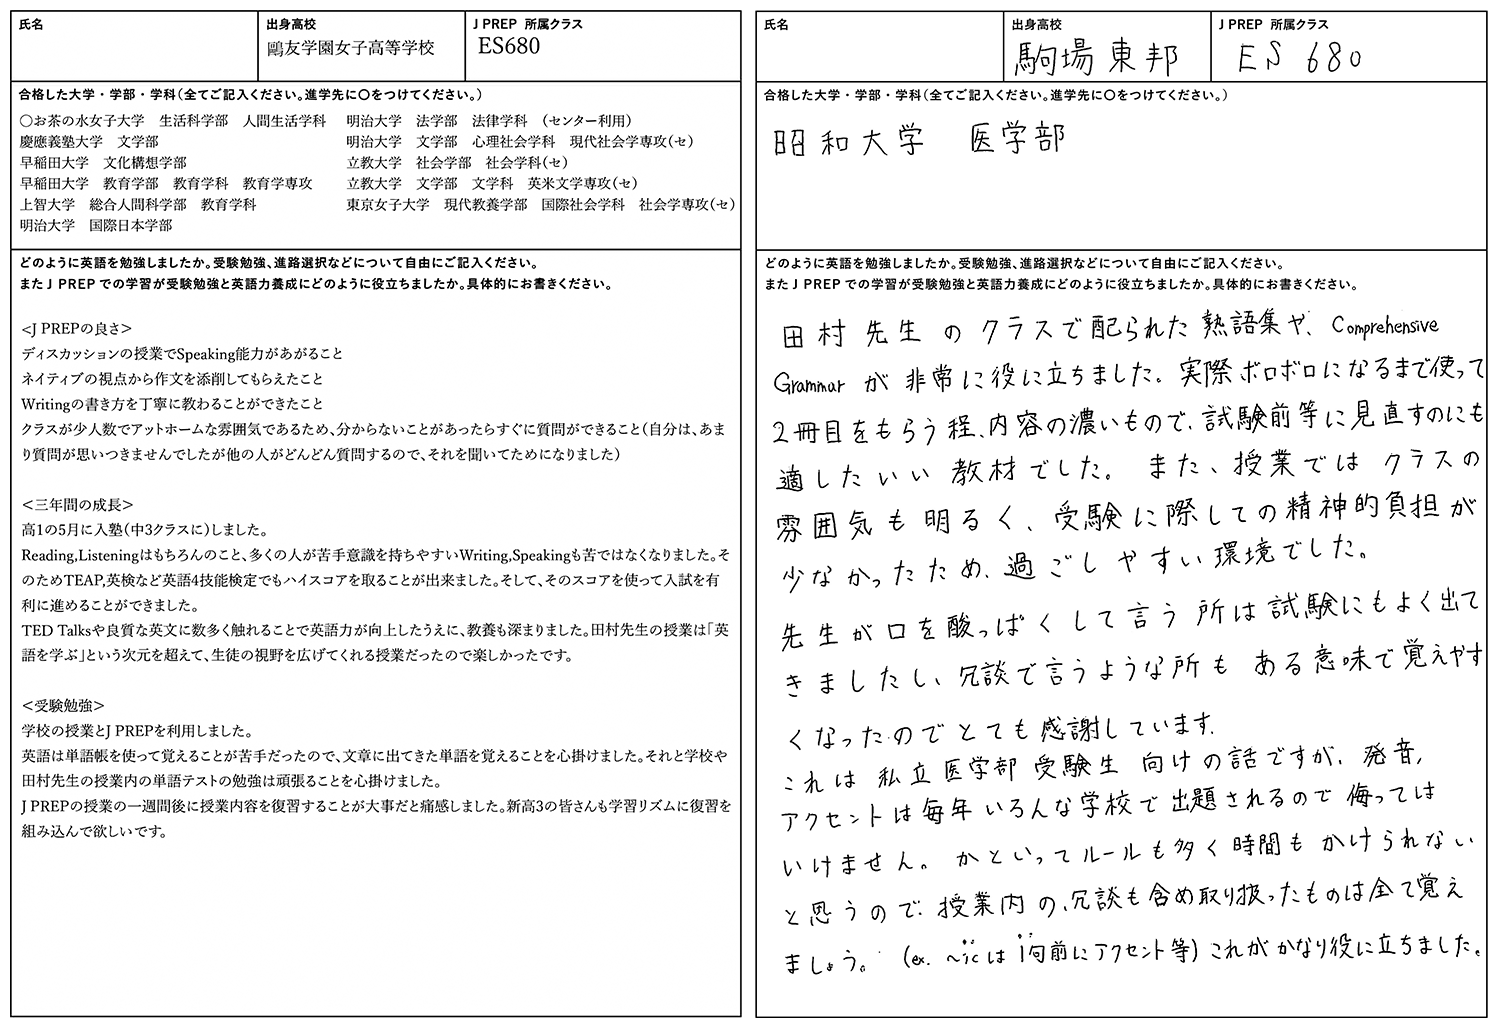 氏名
出身高校
鷗友学園女子高等学校
J PREP 所属クラス
ES680
合格した大学・学部・学科(全てご記入ください。進学先に○をつけてください。)
○お茶の水女子大学 生活科学部 人間生活学科
慶應義塾大学 文学部
早稲田大学 文化構想学部
早稲田大学 教育学部 教育学科 教育学専攻
上智大学 総合人間科学部 教育学科
明治大学 国際日本学部
明治大学 法学部 法律学科 (センター利用)
明治大学 文学部 心理社会学科 現代社会学専攻(セ)
立教大学 社会学部 社会学科(セ)
立教大学 文学部 文学科 英米文学専攻(セ)
東京女子大学 現代教養学部 国際社会学科 社会学専攻(セ)
どのように英語を勉強しましたか。受験勉強、進路選択などについて自由にご記入ください。
またJ PREPでの学習が受験勉強と英語力養成にどのように役立ちましたか。具体的にお書きください。
<J PREPの良さ>
ディスカッションの授業でSpeaking能力があがること
ネイティブの視点から作文を添削してもらえたこと
Writingの書き方を丁寧に教わることができたこと
クラスが少人数でアットホームな雰囲気であるため、分からないことがあったらすぐに質問ができること(自分は、あま
り質問が思いつきませんでしたが他の人がどんどん質問するので、それを聞いてためになりました)
<三年間の成長>
高1の5月に入塾(中3クラスに)しました。
Reading,Listeningはもちろんのこと、多くの人が苦手意識を持ちやすいWriting,Speakingも苦ではなくなりました。そ
のためTEAP,英検など英語4技能検定でもハイスコアを取ることが出来ました。そして、そのスコアを使って入試を有
利に進めることができました。
TED Talksや良質な英文に数多く触れることで英語力が向上したうえに、教養も深まりました。田村先生の授業は「英
語を学ぶ」という次元を超えて、生徒の視野を広げてくれる授業だったので楽しかったです。
<受験勉強>
学校の授業とJ PREPを利用しました。
英語は単語帳を使って覚えることが苦手だったので、文章に出てきた単語を覚えることを心掛けました。それと学校や
田村先生の授業内の単語テストの勉強は頑張ることを心掛けました。
J PREPの授業の一週間後に授業内容を復習することが大事だと痛感しました。新高3の皆さんも学習リズムに復習を
組み込んで欲しいです。
氏名
出身高校
駒場東邦
J PREP 所属クラス
ES 680
合格した大学・学部・学科(全てご記入ください。進学先に○をつけてください。)
昭和大学 医学部
どのように英語を勉強しましたか。受験勉強、進路選択などについて自由にご記入ください。
またJ PREPでの学習が受験勉強と英語力養成にどのように役立ちましたか。具体的にお書きください。
田村先生のクラスで配られた熟語集や、Comprehensive
Grammar が非常に役に立ちました。実際ボロボロになるまで使って
2冊目をもらう程、内容の濃いもので、試験前等に見直すのにも
適したいい教材でした。また、授業ではクラスの
雰囲気も明るく、受験に際しての精神的負担が
少なかったため、過ごしやすい環境でした。
先生が口を酸っぱくして言う所は試験にもよく出て
きましたし、冗談で言うような所もある意味で覚えやす
くなったのでとても感謝しています.
これは私立医学部受験生向けの話ですが、発音,
アクセントは毎年いろんな学校で出題されるので侮っては
いけません。かといってルールも多く時間もかけられない
と思うので、授業内の、冗談も含め取り扱ったものは全て覚え
ましょう。(ex. ~icはi句前にアクセント等)これがかなり役に立ちました。